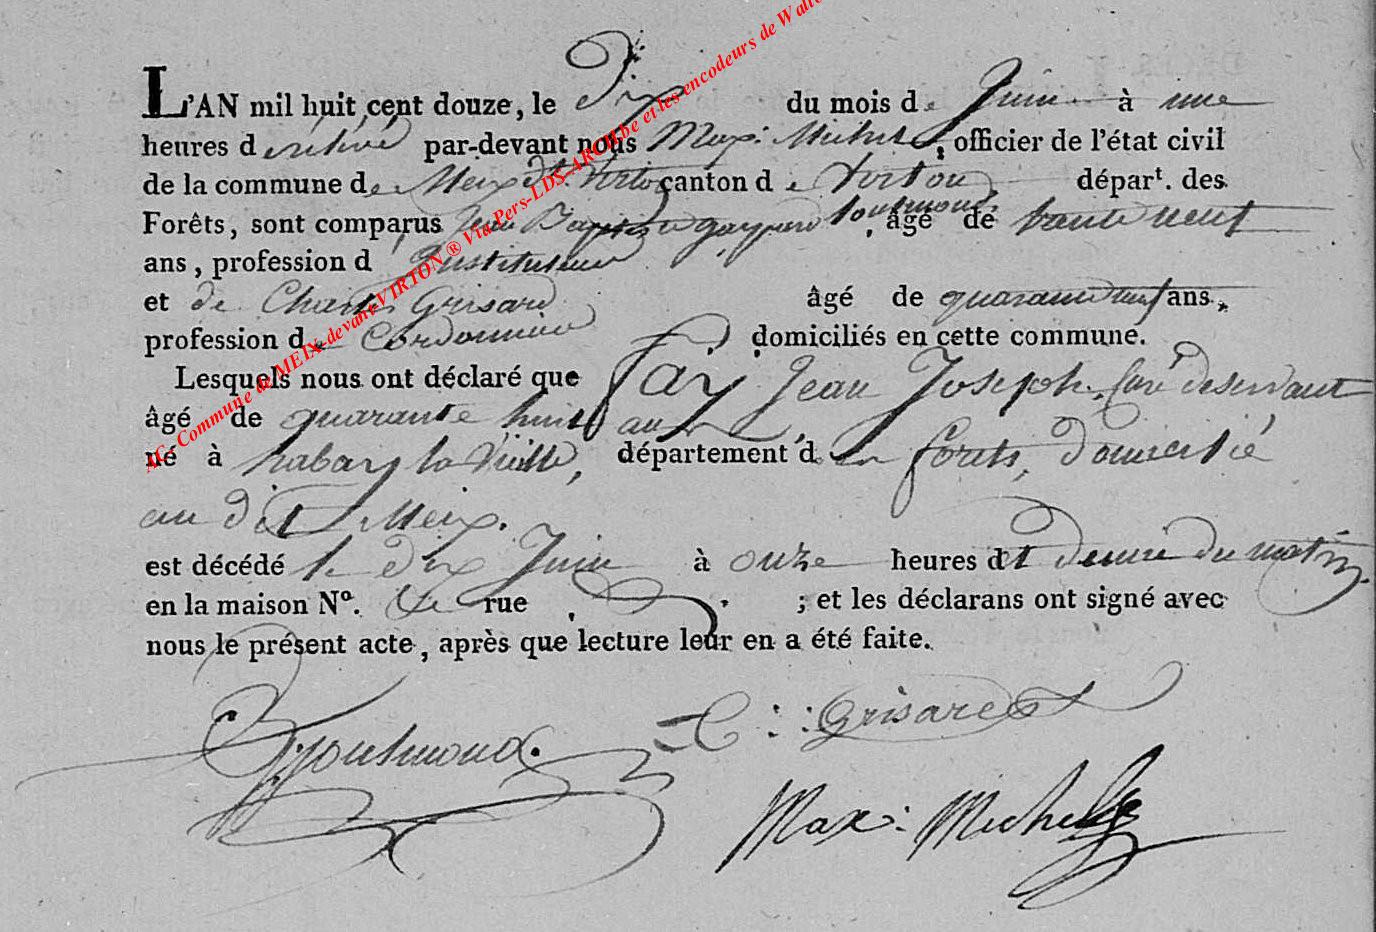 AC. Commune de MEIX-devant-VIRTON ® Via Pers-LDS-ARCH.be et les encodeurs de Wallo
L'AN mil huit cent douze, le Dix du mois de Juin à une
heures de relevé par-devant nous Max: Michel, officier de l'état civil
de la commune de Meix dt. Virton canton de Virton, départ. des
Forêts, sont comparus Jean Baptiste gaspard toulmond, âgé de trante neuf
ans, profession d Instituteur
et de Charle Grisard âgé de quarante neuf ans,
profession de Cordonnier domiciliés en cette commune.
Lesquels nous ont déclaré que fay Jean Joseph, Curé deservant
âgé de quarante huit an
né à habay la Vieille, département de forets, domicilié
au dit Meix.
est décédé le dix Juin à onze heures et demie du matin
en la maison Nº. rue ; et les déclarans ont signé avec
nous le présent acte, après que lecture leur en a été faite.
toulmond. C : : Grisard
Max: Michel